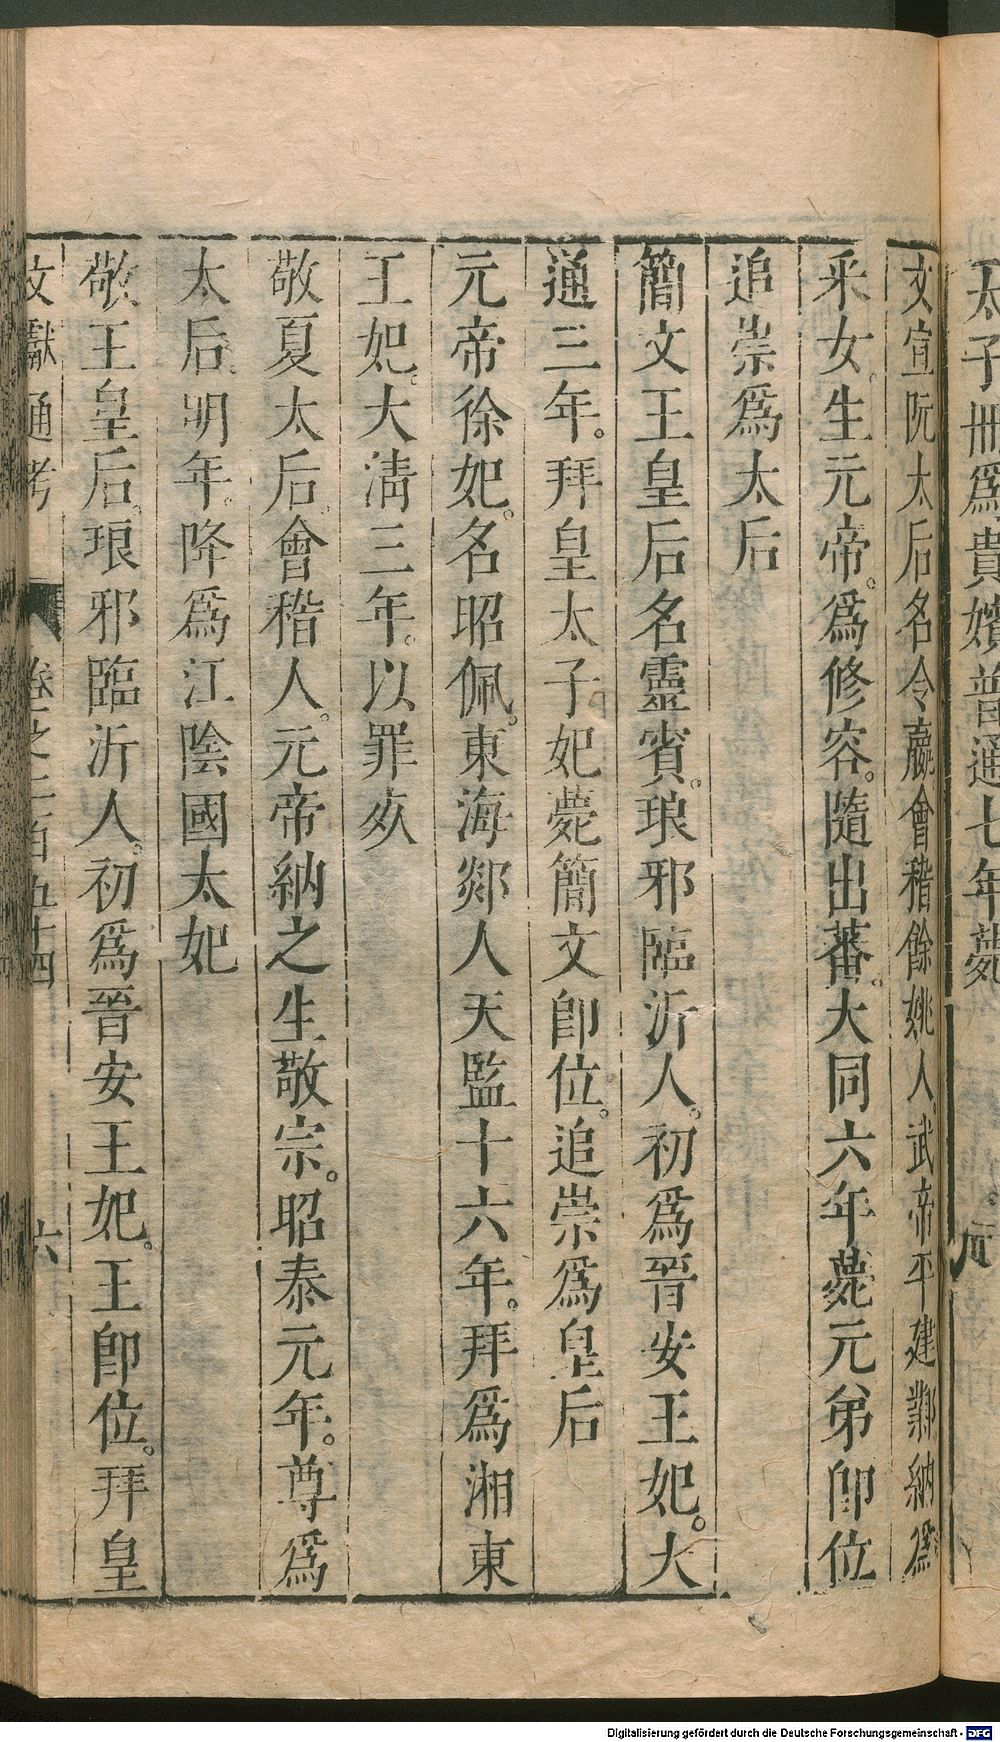 太子冊為貴嬪普通七年薨
文宣阮太后名令嬴會稽餘姚人。武帝平建鄴納為
釆女。生元帝。為修容。隨出蕃。大同六年薨元弟卽位
追崇為太后
簡文王皇后名靈賓。琅邪臨沂人。初為晉安王妃。大
通三年。拜皇太子妃薨簡文卽位。追崇為皇后
元帝徐妃。名昭佩。東海郯人天監十六年。拜為湘東
王妃。大淸三年。以罪死
敬夏太后。會稽人。元帝納之生敬宗。昭泰元年。尊為
太后。明年。降為江陰國太妃
敬王皇后。琅邪臨沂人。初為晉安王妃。王卽位。拜皇
文獻通考 卷之二百五十四 六
Digitalisierung gefördert durch die Deutsche Forschungsgemeinschaft - DFG